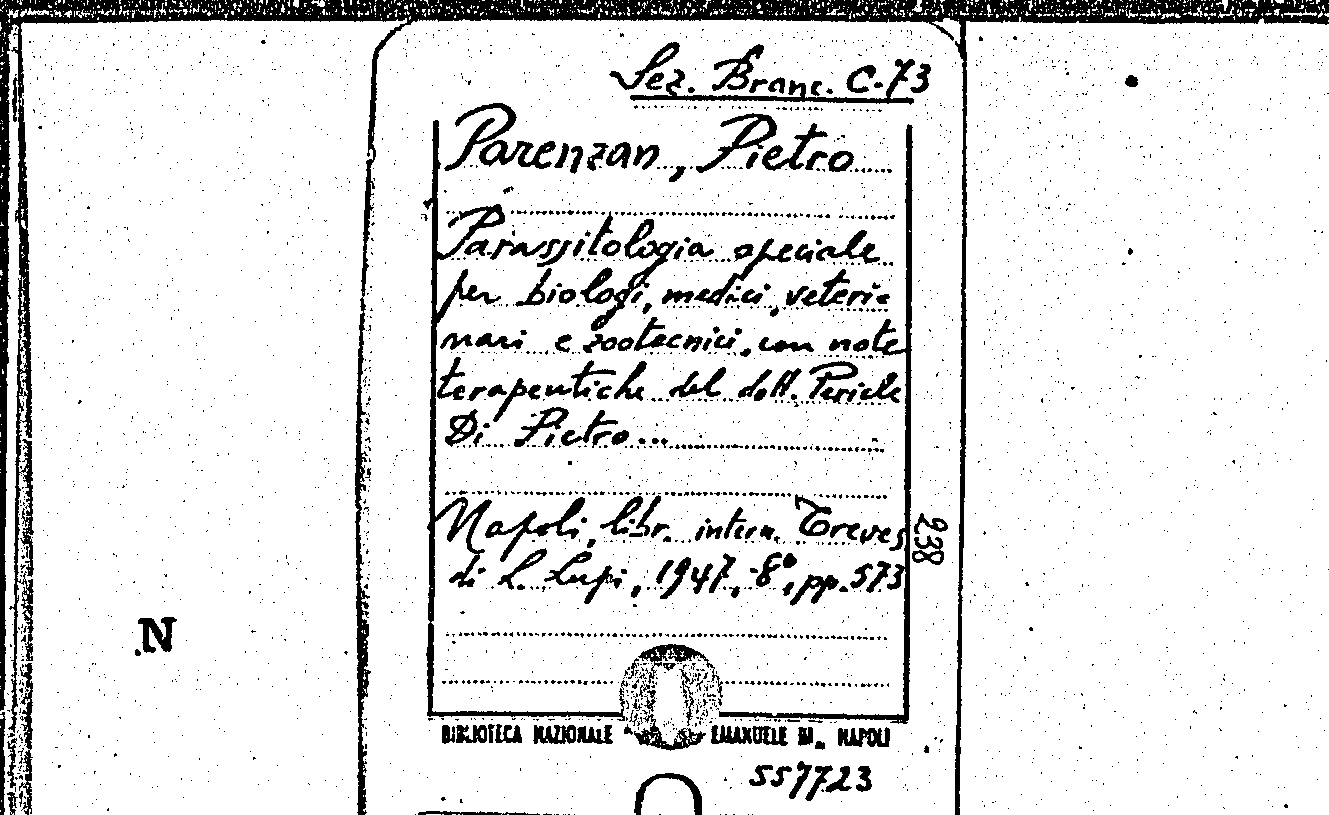 Sez. Branc. C.73
Parenzan, Pietro
Parassitologia speciale
per biologi, medici, veteri=
nari e zootecnici, con note
terapeutiche del dott. Pericle
Di Pietro...
Napoli, libr. intern. Treves
di L. Lupi, 1947, 8°, pp. 573
238
N
BIBLIOTECA NAZIONALE EMANUELE III NAPOLI
557723